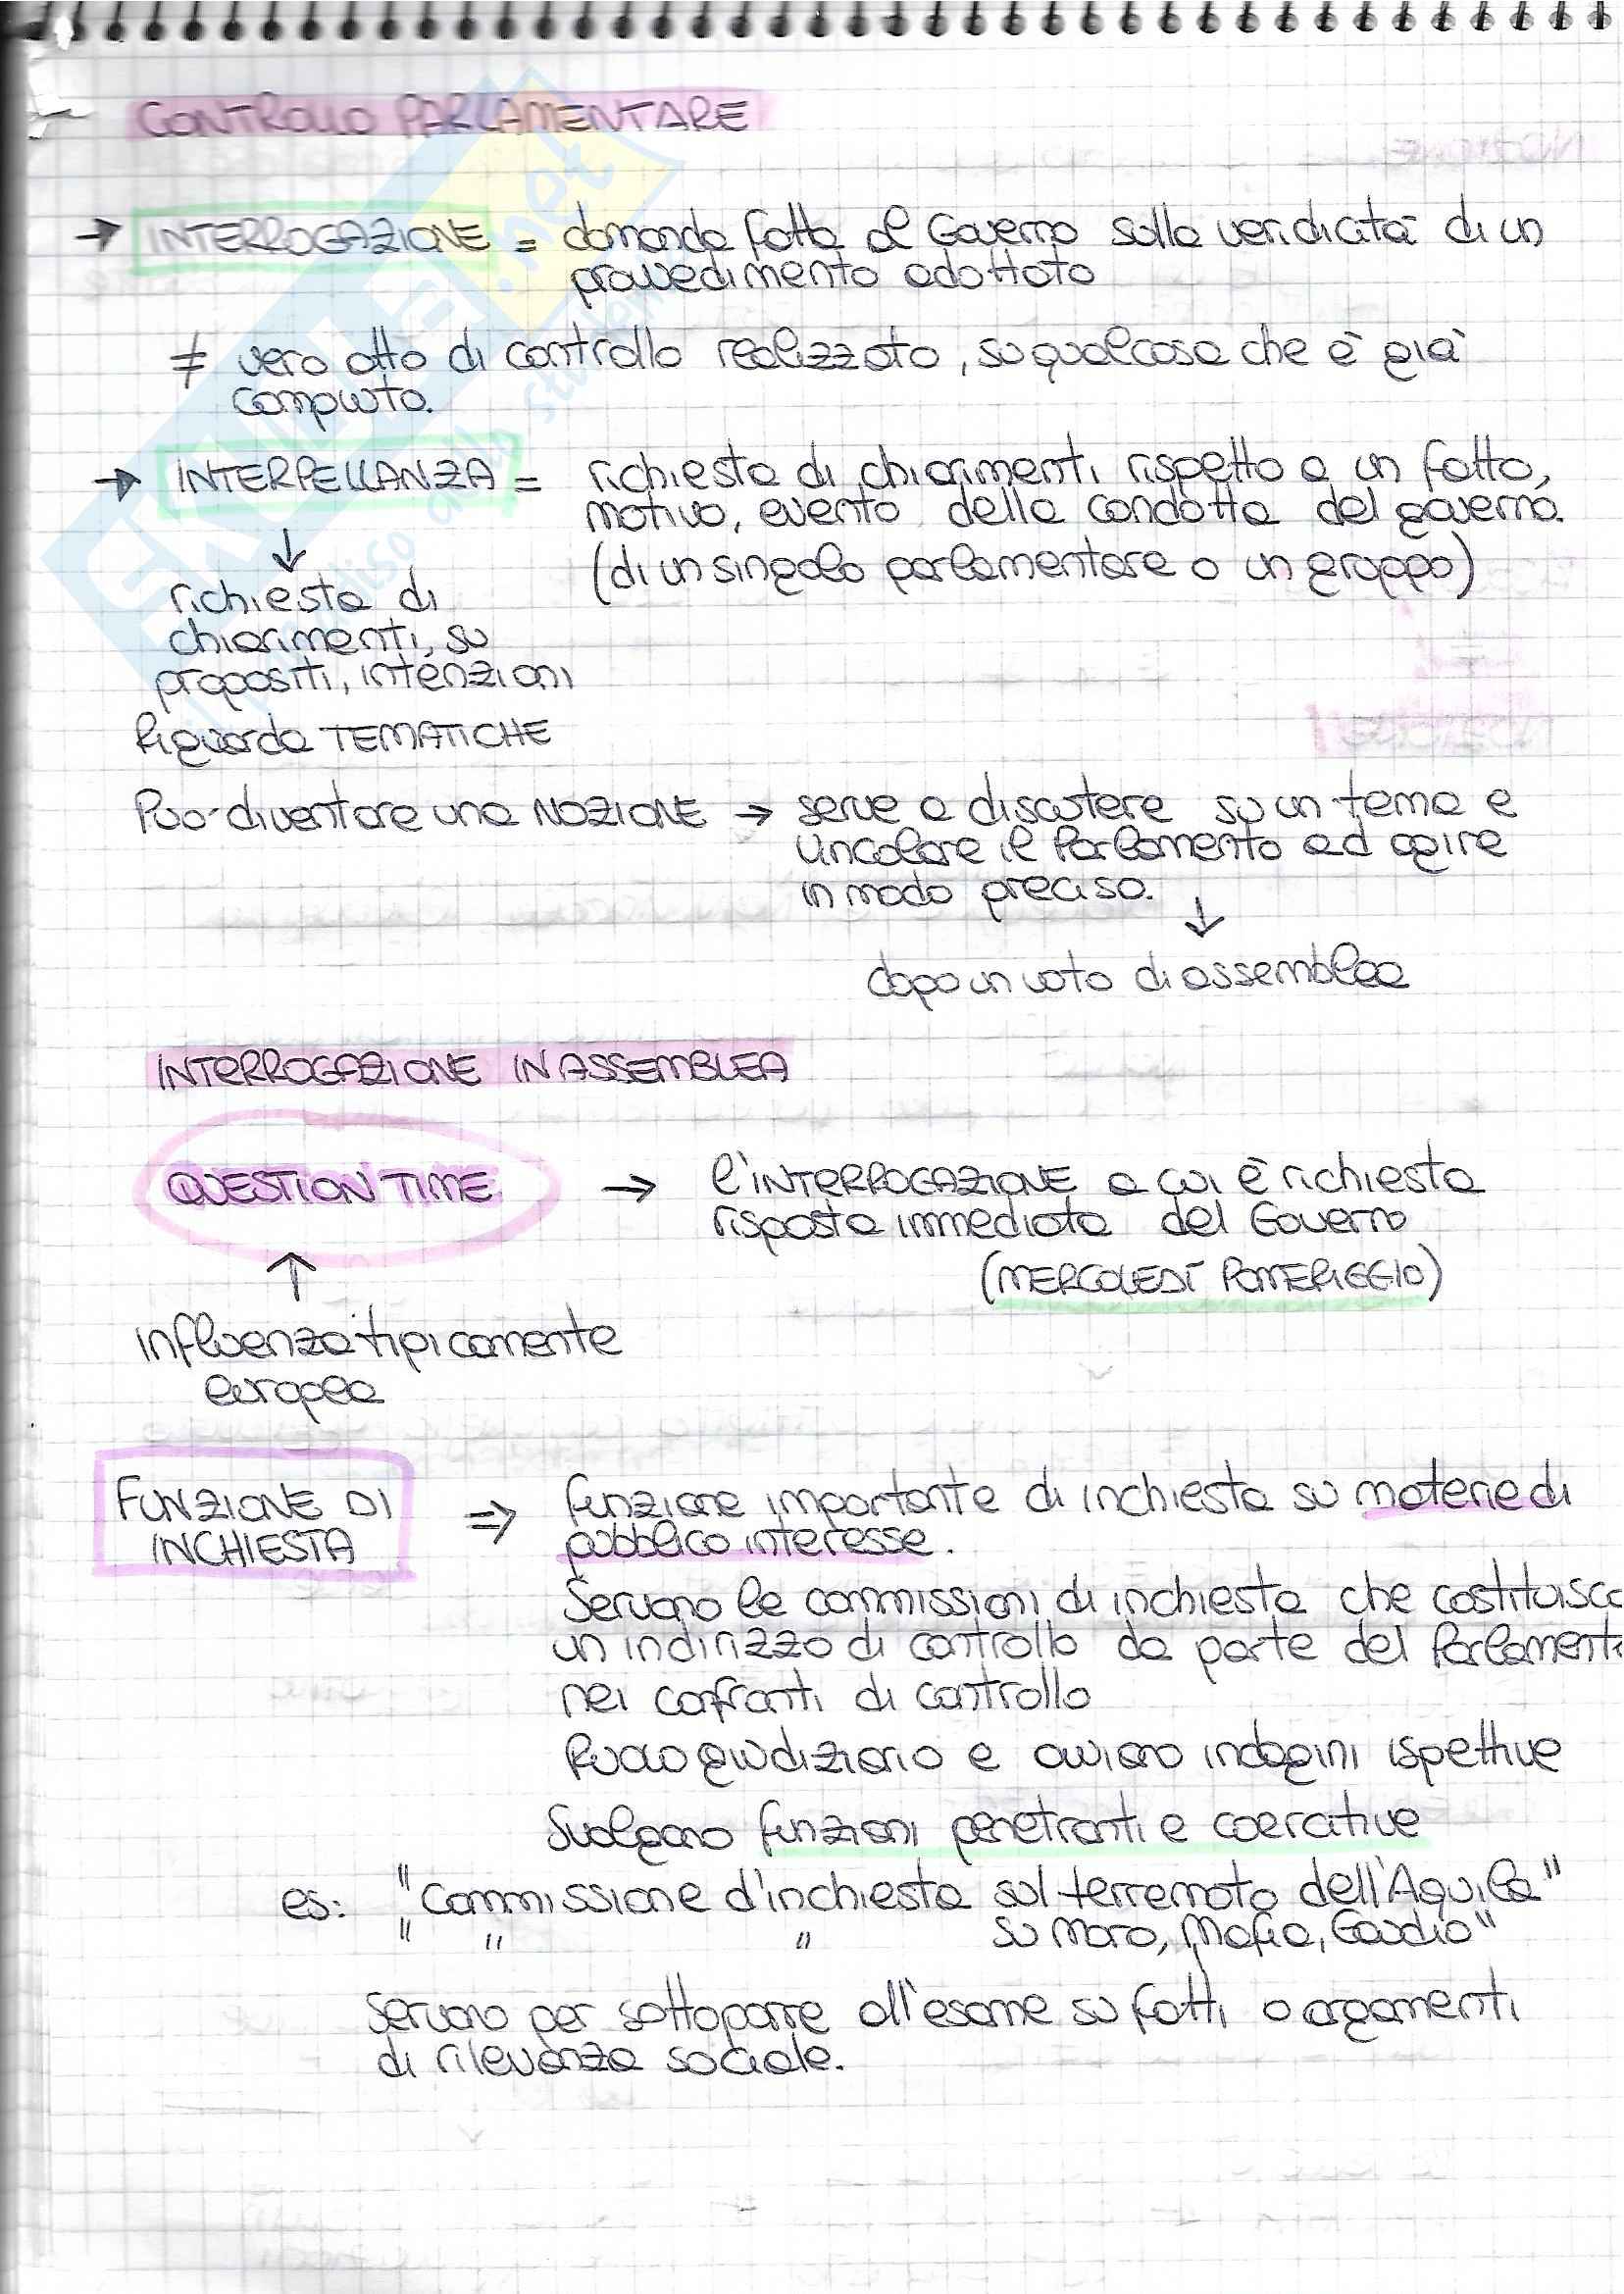 CONTROLLO PARLAMENTARE
→ INTERROGAZIONE = domanda fatta al Governo sulla veridicità di un
provvedimento adottato
≠ vero atto di controllo realizzato, su qualcosa che è già
compiuto.
→ INTERPELLANZA = richiesta di chiarimenti rispetto a un fatto,
motivo, evento della condotta del governo.
(di un singolo parlamentare o un gruppo)
↓
richiesta di
chiarimenti, su
propositi, intenzioni
Riguarda TEMATICHE
Può diventare una MOZIONE → serve a discutere su un tema e
vincolare il Parlamento ad agire
in modo preciso.
↓
dopo un voto di assemblea
INTERROGAZIONE IN ASSEMBLEA
QUESTION TIME → l'INTERROGAZIONE a cui è richiesta
risposta immediata del Governo
(MERCOLEDÌ POMERIGGIO)
↑
influenza tipicamente
europea
FUNZIONE DI
INCHIESTA
⇒ funzione importante di inchiesta su materie di
pubblico interesse.
Servono le commissioni di inchiesta che costituisco
un indirizzo di controllo da parte del Parlament
nei confronti di controllo
Ruolo giudiziario e avviano indagini ispettive
Svolgono funzioni penetranti e coercitive
es: "Commissione d'inchiesta sul terremoto dell'Aquila"
" " " su Moro, Mafia, Gaudio"
Servono per sottoporre all'esame su fatti o argomenti
di rilevanza sociale.